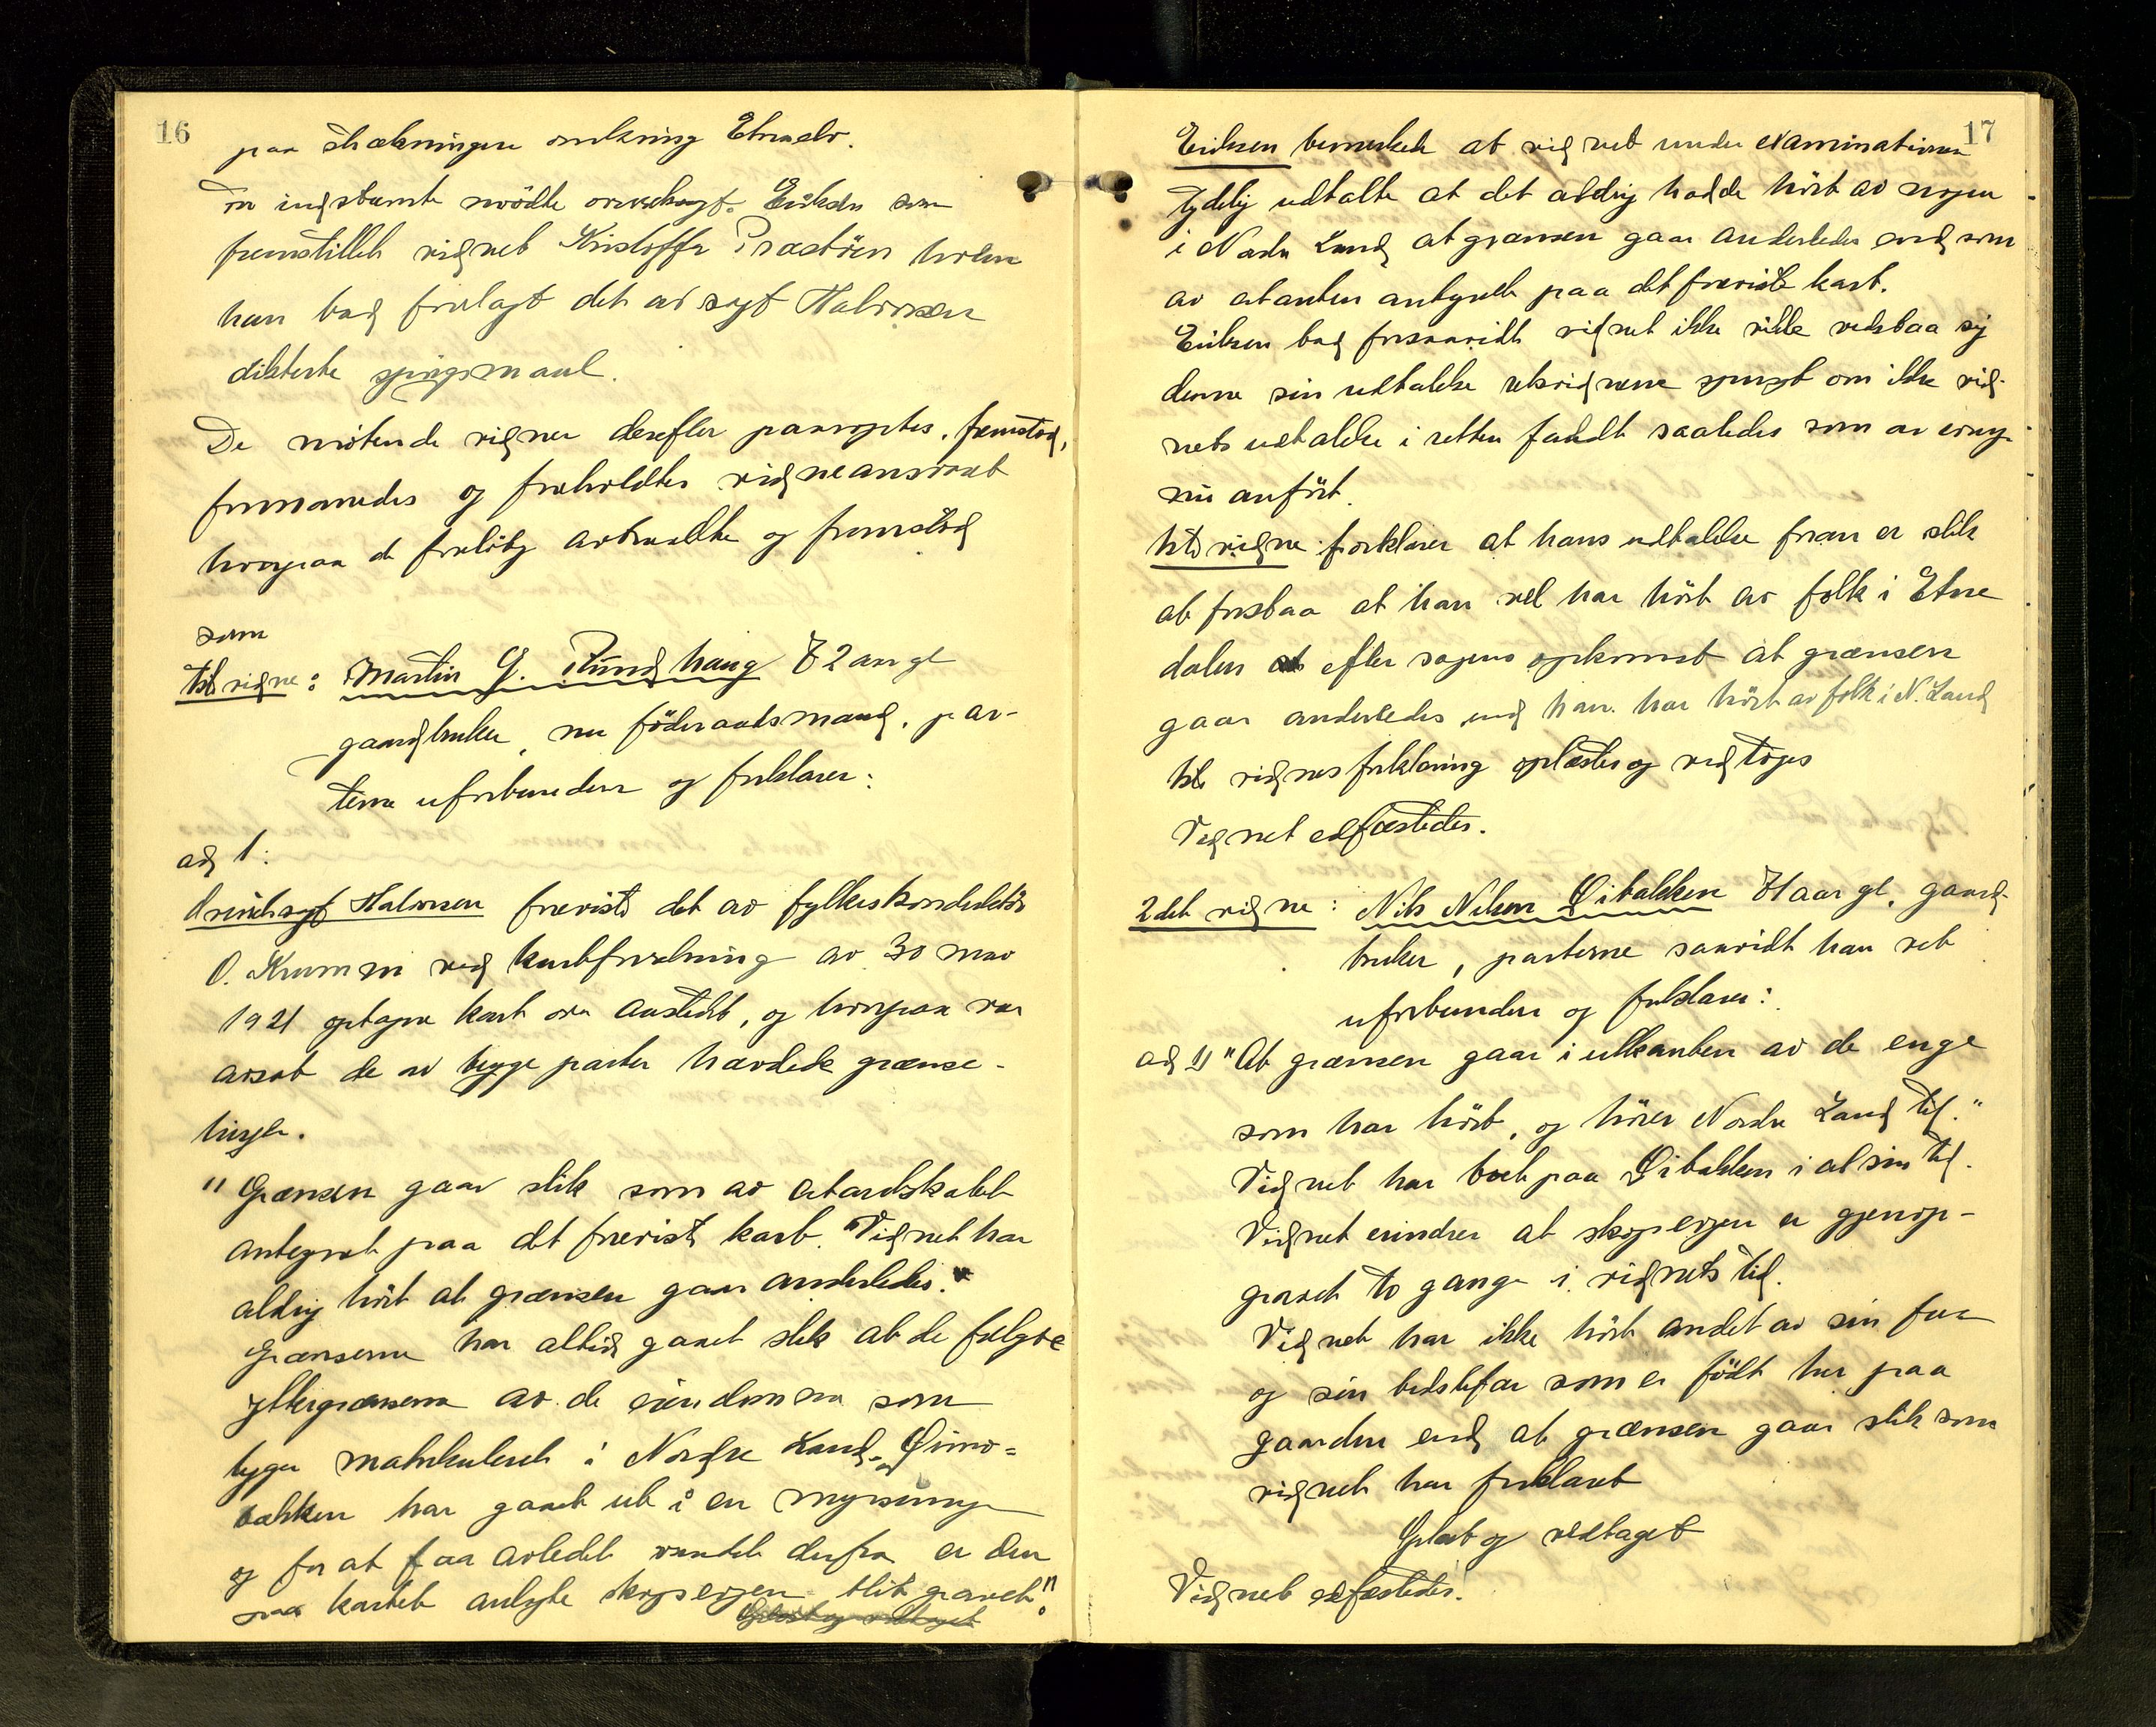 16
paa strækningen omkring Etnaelv.
For indstevnte mødte orsaksagf. Eriksen som
fremstillet vidnet Kristoffer Præstøien hvem
han bad forelagt det av sagf Halvorsen
dikterte spørgsmaal.
De møtende vidner derefter paaroptes, fremstod,
formanedes og foreholdtes vidneansvaret
hvorpaa de foreløbig avtraadte og fremstod
som
1ste vidne: Martin G. Rundhaug 72 aar gl
gaardbruker, nu føderaadsmand, par-
terne uforbunden og forklarer:
ad 1:
Orsaksagf Halvorsen foreviste det av fylkeskonduktør
O. Krumm ved kartforretning av 30 mai
1921 optagne kart over aastedet, og hvorpaa var
avsat de av begge parter hævdede grænse-
linjer.
"Grænsen gaar slik som av Atandskabet
antegnet paa det foreviste kart. "Vidnet har
aldrig hørt at grænsen gaar anderledes."
Grænserne har altid gaaet slik at de fulgte
yttergrænserne av de eiendommer som
ligger matrikuleret i Nordre Land. Øimo-
bækken har gaaet ut i en myrsump
og for at faa avledet vandet derfra er den
paa kartet anlagte skogseigen blit gravet".
Oplæst og vedtaget
17
Eriksen bemerket at vidnet under examinationen
tydelig udtalte at det aldrig hadde hørt av nogen
i Nordre Land at grænsen gaar anderledes end som
av atanten antegnet paa det foreviste kart.
Eriksen bad forsaavidt vidnet ikke vilde vedstaa sig
denne sin udtalelse retsvidnene spurgt om ikke vid-
nets udtalelse i retten faldt saaledes som av
nu anført.
1ste vidne forklarer at hans udtalelse foran er slik
at forstaa at han vel har hørt av folk i Etne
dalen efter sagens opkomst at grænsen
gaar anderledes end han har hørt av folk i N. Land
1ste vidnes forklaring oplæstes og vedtoges
Vidnet edfæstedes.
2det vidne: Nils Nilsen Øibakken 71 aar gl. gaard-
bruker, parterne saavidt han vet
uforbunden og forklarer:
ad 1) "At grænsen gaar i utkanten av de enge
som har hørt, og hører Nordre Land til."
Vidnet har boet paa Øibakken i al sin tid.
Vidnet erindrer at skogseigen er gjenop-
gravet to gange i vidnets tid.
Vidnet har ikke hørt andet av sin far
og sin bedstefar som er født her paa
gaarden end at grænsen gaar slik som
vidnet har forklaret
Oplæst og vedtaget
Vidnet edfæstedes.